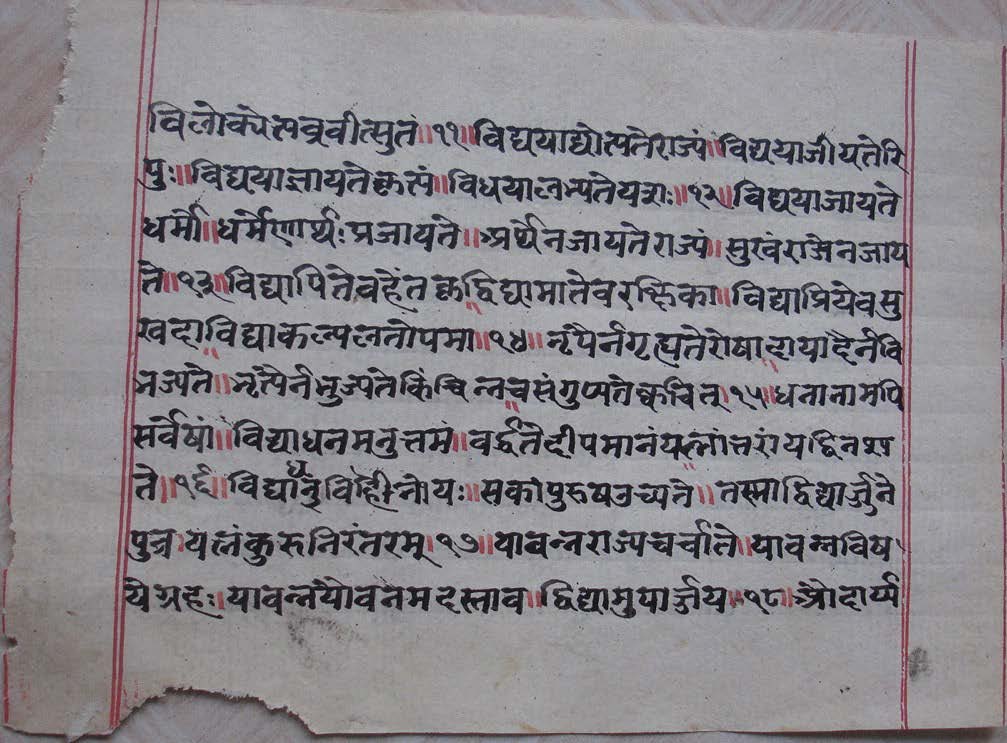 विलोक्येत्सब्रवीत्सुतं॥११॥विद्ययाद्योत्पतेराज्यं॥विद्ययाजीयतेरि
पुः॥विद्ययाज्ञायतेकृत्सं॥विधयालभ्यतेयशः॥१२॥विद्ययाजायते
धर्मो॥धर्मेणार्थःप्रजायते॥अर्थेनजायतेराज्यं॥सुखंराजेनजाय
ते॥१३॥विद्यापितेवहेंतकृद्विद्यामातेवरक्षिका॥विद्याप्रियेवसु
खदा॥विद्याकल्पलतोपमा॥१४॥नृपैर्नगृह्यतेरोषादायादैर्नवि
भज्यते॥भृत्यैर्नभुज्यतेकिंचिन्नचसंगुप्यतेक्वचित्॥१५॥धनानामपि
सर्वेषां॥विद्याधनमनुत्तमं॥वर्द्धतेदीपमानंयत्नांतरायद्विनश्य
ते॥१६॥विद्याधनुर्विहीनोयः॥सकापुरुषउच्यते॥तस्माद्विद्यार्जुने
पुत्र॥यत्नंकुरुनिरंतरम्॥१७॥यावन्नराज्यचर्चाते॥यावन्नविष
येग्रहः॥यावन्नयौवनमदस्ताव॥द्विद्यामुपार्ज्जय॥१८॥औदार्य्य